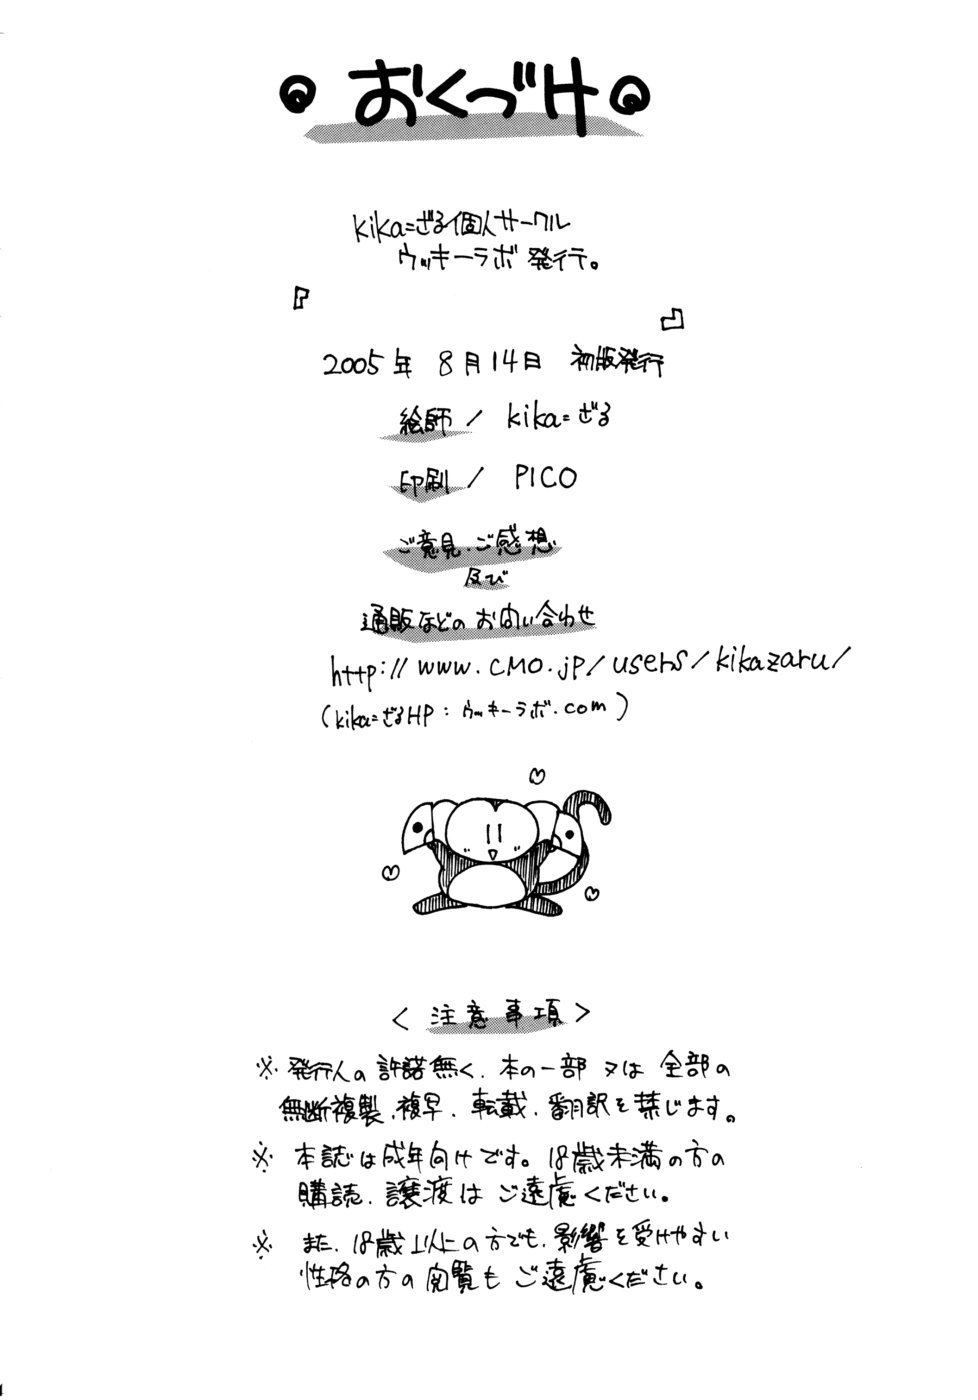 おくづけ
kika=ざる個人サークル
ウッキーラボ 発行。
『
』
2005年 8月14日 初版発行
絵師 / kika=ざる
印刷 / PICO
ご意見、ご感想
及び
通販などのお問い合わせ
http://www.cmo.jp/users/kikazaru/
(kika=ざるHP:ウッキーラボ.com)
<注意事項>
※発行人の許諾無く、本の一部 又は 全部の
無断複製、複写、転載、翻訳を禁じます。
※ 本誌は成年向けです。18歳未満の方の
購読、譲渡は ご遠慮ください。
※ また、18歳以上の方でも、影響を受けやすい
性格の方の閲覧も ご遠慮ください。